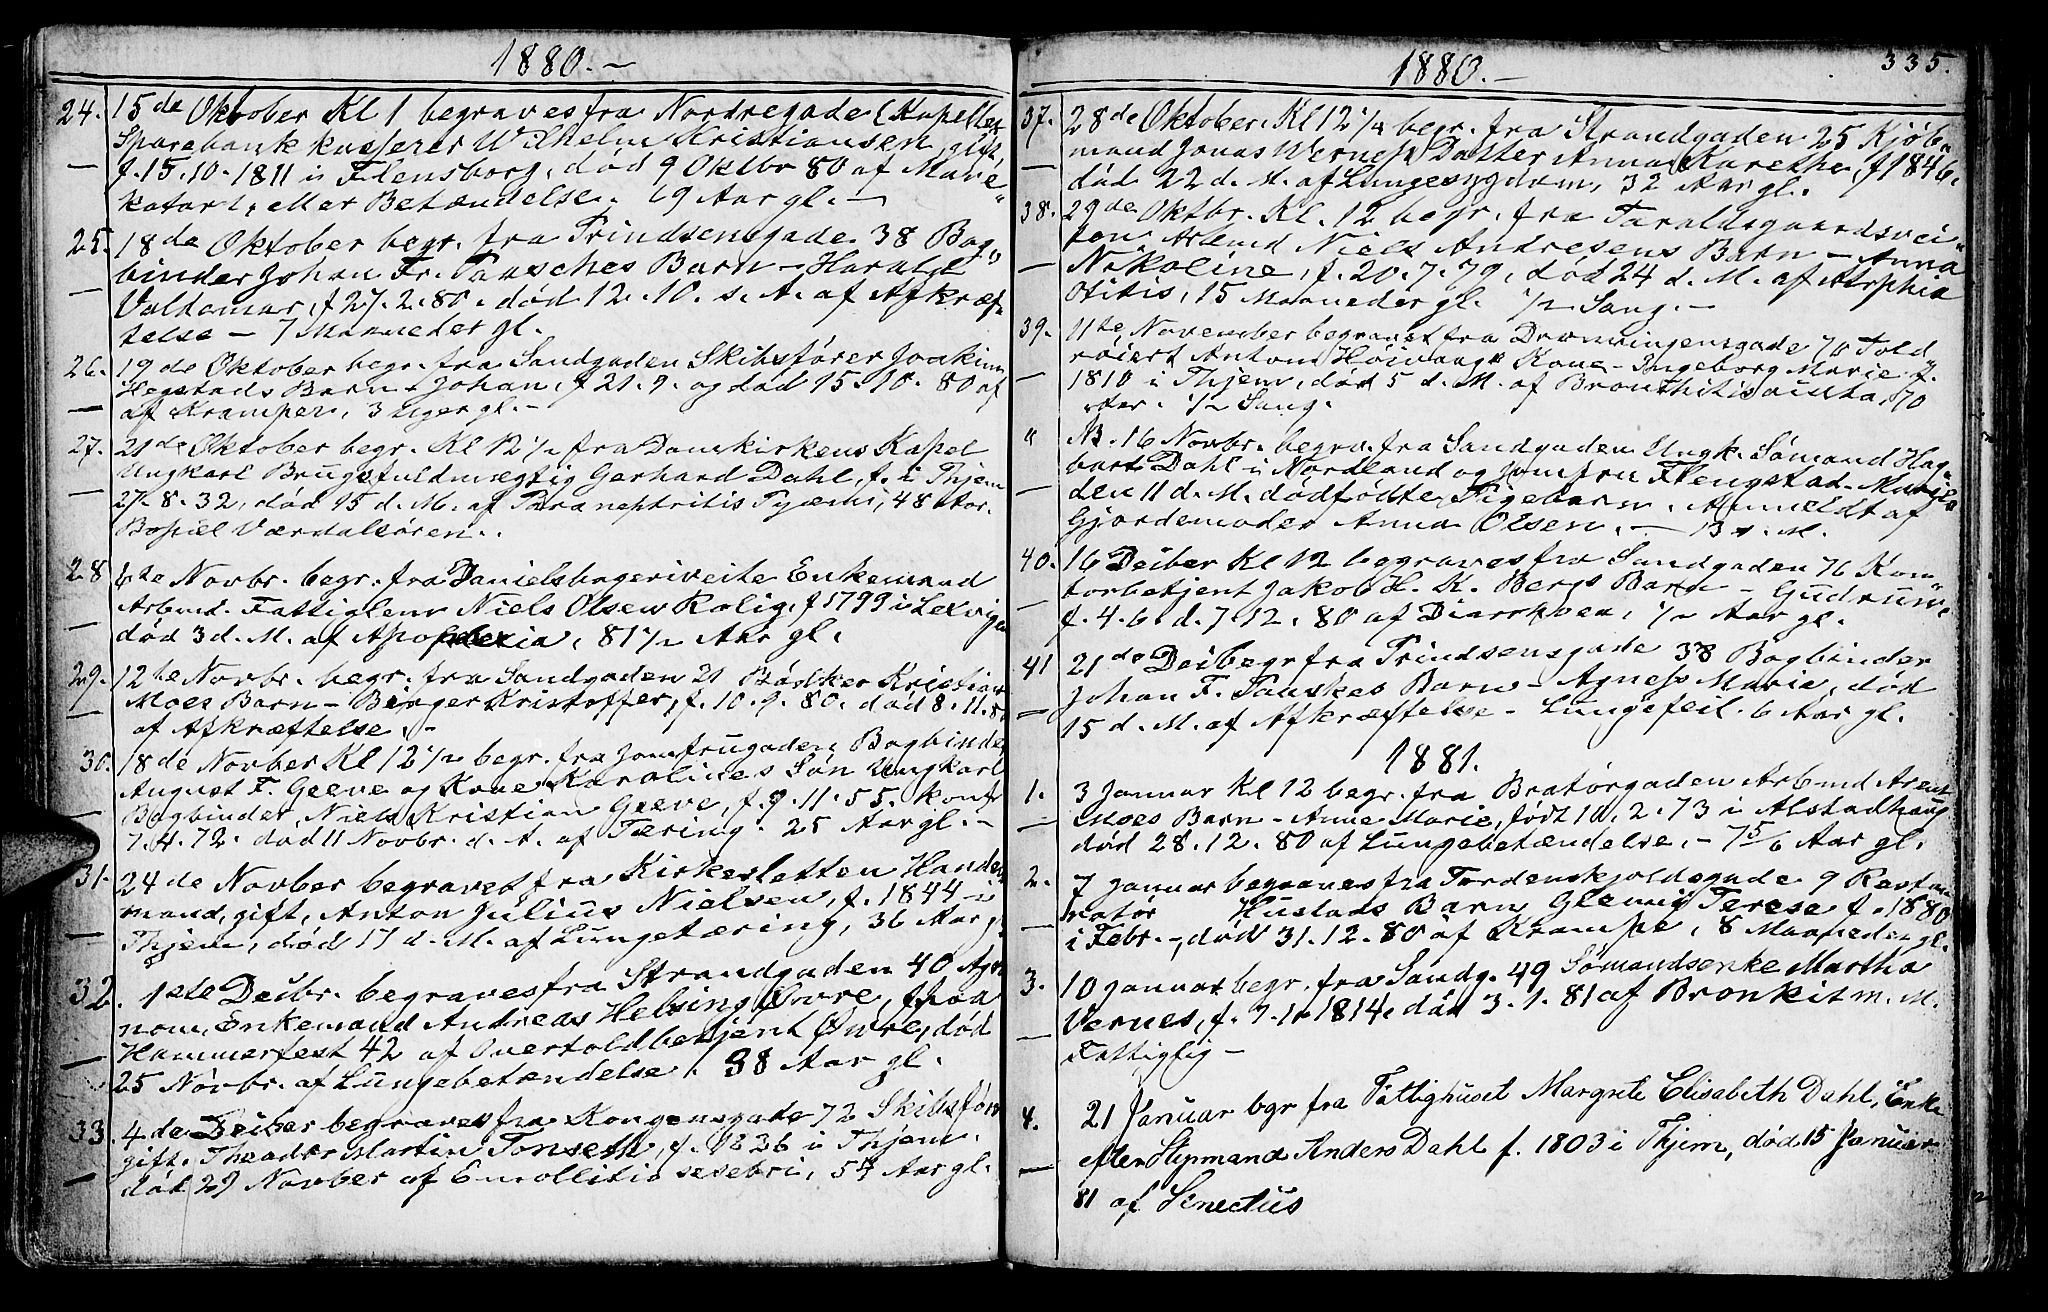 1880.-
24. 15de Oktober Kl 1 begraves fra Nordregade (Kapellet
Sparebankkasserer Wilhelm Kristiansen, gift,
f. 15.10.1811 i Flensborg, død 9 Oktbr 80 af Mave
katarh, eller Betændelse. 69 Aar gl. -
25. 18de Oktober begr. fra Prindsensgade 38 Bog-
binder Johan Fr. Tausches Barn - Harald
Valdemar, f 27.2.80. død 12.10. s. A. af Afkræf-
telse - 7 Maaneder gl.
26. 19de Oktober begr. fra Sandgaden Skibsfører Joakim
Hegstads Barn - Johan, f 21.9. og død 15.10.80 af
af Kramper, 3 Uger gl. -
27. 21de Oktober begr. Kl 12 1/2 fra Domkirkens Kapel
Ungkarl Brugsfuldmægtig Gerhard Dahl, f. i Thjem
27.8.32, død 15 d. M. af Paranephritis Pyæmi, 48 Aar.
Bopæl Værdalsøren.
28 6te Novbr. begr. fra Danielsbageriveite Enkemand
Arbmd. Fattiglem Niels Olsen Rolig, f 1799 i Lexvigen
død 3 d. M. af Apoplexia, 81 1/2 Aar gl.
29. 12te Novbr. begr. fra Sandgaden 21 Bødker Kristian
Moes Barn - Birger Kristoffer, f. 10.9.80. død 8.11.80
af Afkræftelse. -
30. 18de Novber Kl 12 1/2 begr. fra Jomfrugaden Bogbinder
August F. Geeve og Kone Karolines Søn Ungkarl
Bogbinder Niels Kristian Geeve, f. 9.11.55. konf
7.4.72. død 11 Novbr. d. A. af Tæring. 25 Aar gl. -
31. 24de Novber begraves fra Kirkesletten Handels
mand, gift, Anton Julius Nielsen, f. 1844 i
Thjem, død 17 d. M. af Lungetæring, 36 Aar gl.
32. 1ste Decbr. begraves fra Strandgaden 40 Agro
nom, Enkemand Andreas Helsing Øwre, f fra
Hammerfest 42 af Overtoldbetjent Øwre, død
25 Novbr. af Lungebetændelse. 38 Aar gl.
33. 4de Decber begraves fra Kongensgade 72 Skibsfører
gift. Theodor Martin Tonseth, f. 1826 i Thjem.
død 29 Novber af Emollitio serebri, 54 Aar gl.
1880.- 335.
37. 28de Oktober. Kl 12 1/4 begr. fra Strandgaden 25 Kjøb-
mand Jonas Werness Datter Anna Karethe, f 1846.
død 22 d. M. af Lungesygdom, 32 Aar gl.
38. 29de Oktbr. Kl. 12 begr. fra Taraldsgaardsvei-
ten, Arbmd Niels Andresens Barn - Anna
Nikoline, f. 20.7.79, død 24 d. M. af
Otitis, 15 Maaneder gl. 1/2 Sang. -
39. 11te November begravet fra Dronningensgade 70 Told
roiert Antons Høivaags Kone - Ingeborg Marie f.
1810 i Thjem, død 5 d. M. af Bronchitis acuta, 70
Aar. 1/2 Sang.
" NB. 16 Novbr. begrv. fra Sandgaden Ungk. Sømand Hag-
bart Dahl i Nordland og Jomfru Flengstad - Maries
den 11 d. M. dødfødte Pigebarn. Anmeldt af
Gjordemoder Anna Olsen. -
40. 16 Decber Kl 12 begraves fra Sandgaden 76 Kon-
torbetjent Jakob H. K. Bergs Barn - Gudrun
f. 4.6. d. 7.12.80 af Diarrhoea, 1/2 Aar gl.
41 21de Decbr begr fra Prindsensgade 38 Bogbinder
Johan F. Tauskes Barn - Agness Marie, død
15 d. M. af Afkræftelse - Lungefeil. 6 Aar gl.
1881.
1. 3 Januar Kl 12 begr. fra Bratørgaden Arbmd Arent
Moes Barn - Anne Marie, født 10.2.73 i Alstadhaug
død 28.12.80 af Lungebetændelse. - 7 5/6 Aar gl.
2. 7 Januar begraves fra Tordenskjoldsgade 9 Restau-
ratør Hustads Barn Terese f. 1880
i Febr. -, død 31.12.80 af Krampe, 8 Maaneder gl.
3. 10 Januar begr. fra Sandg. 49 Sømandsenke Martha
Vernes, f. 7.10.1814, død 3.1.81 af Bronkit m. M.
Fattiglig -
4. 21 Januar bgr fra Fattighuset Margrete Elisabeth Dahl, Enke
efter Slipmand Anders Dahl f. 1803 i Thjem, død 15 Januar
81 af Senectus